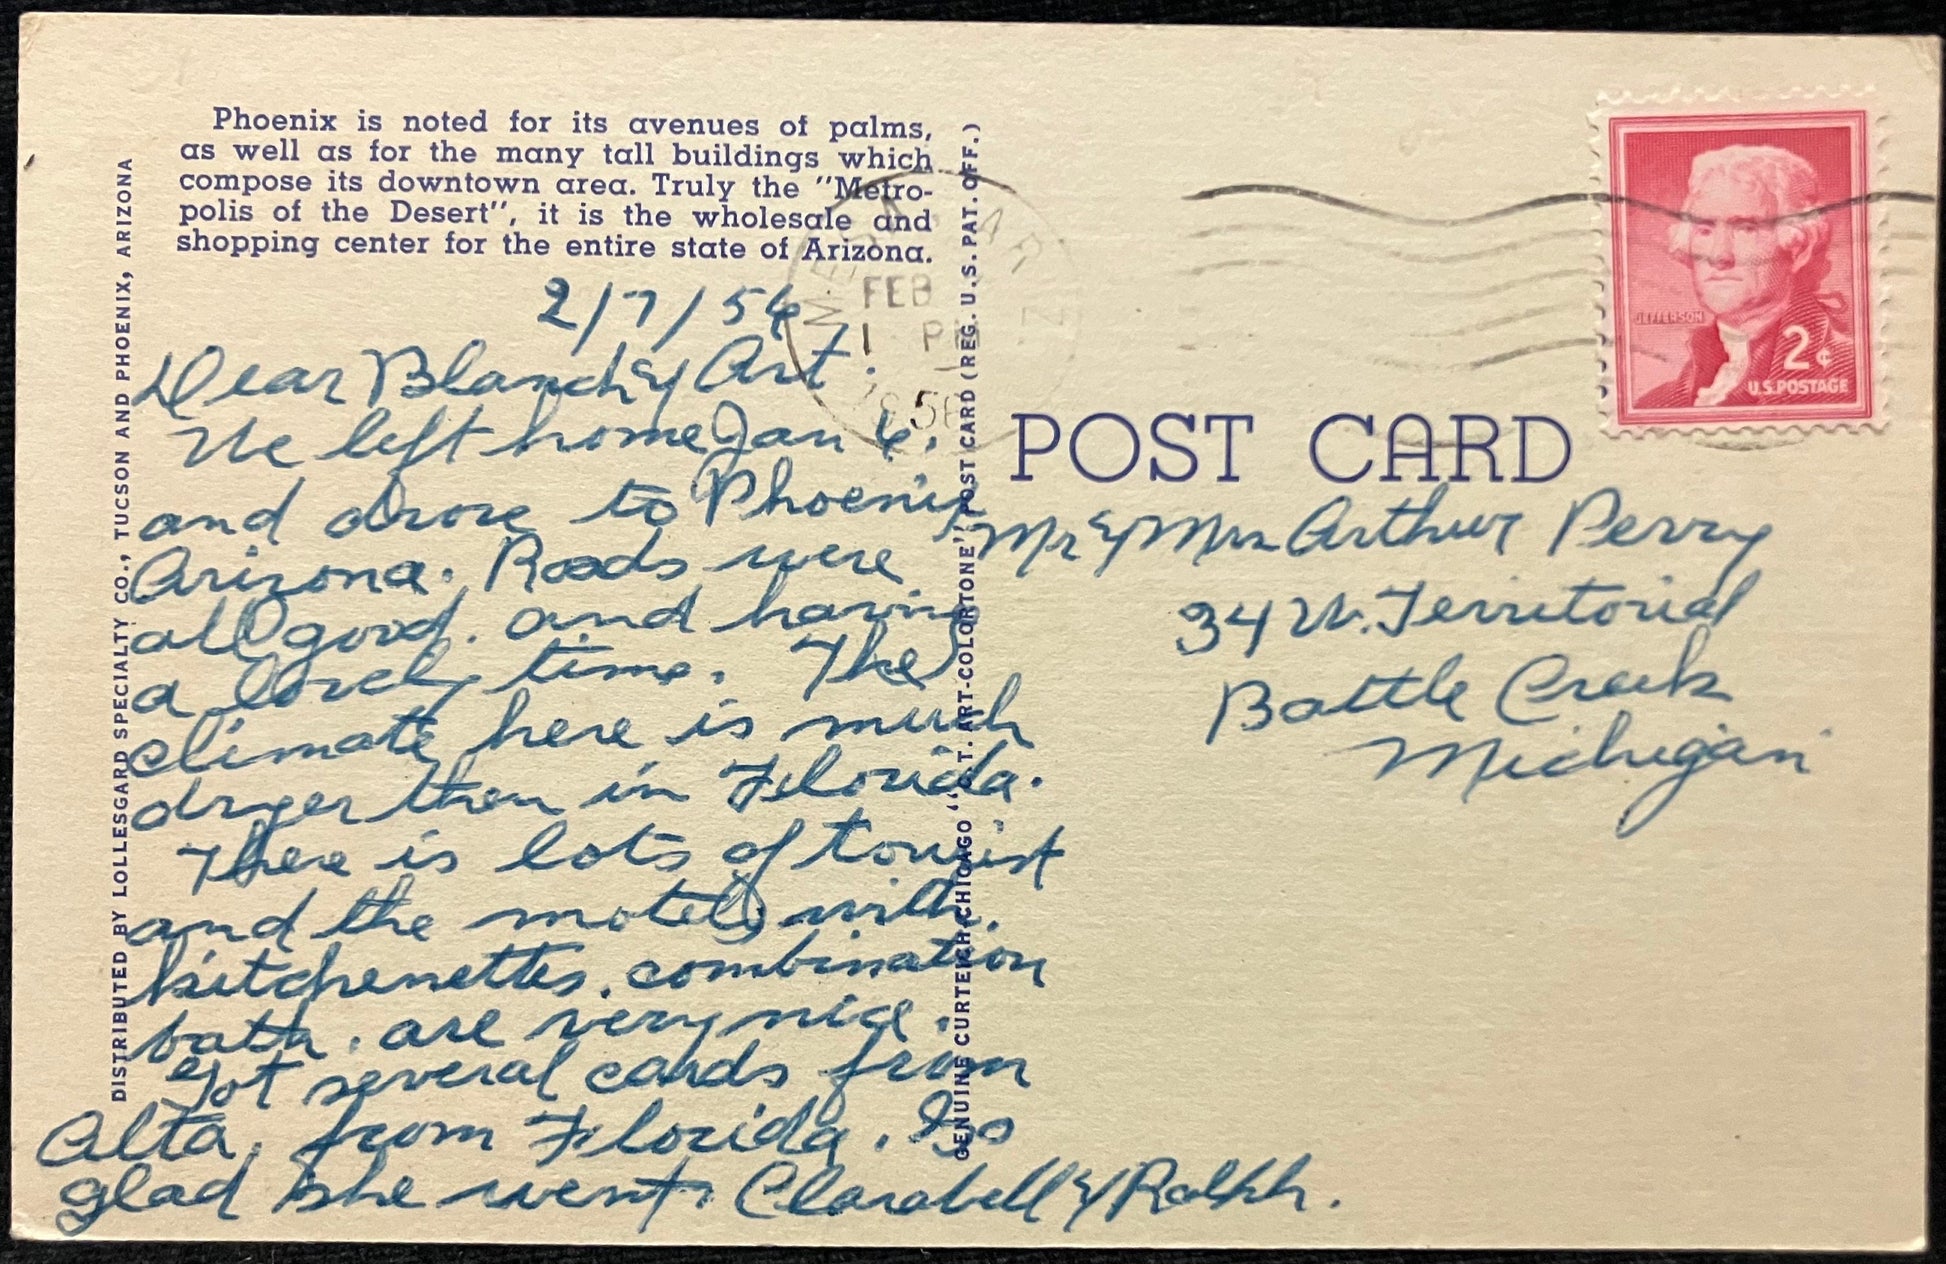 Phoenix is noted for its avenues of palms,
as well as for the many tall buildings which
compose its downtown area. Truly the "Metro-
polis of the Desert", it is the wholesale and
shopping center for the entire state of Arizona.
DISTRIBUTED BY LOLLESGARD SPECIALTY CO., TUCSON AND PHOENIX, ARIZONA
2/7/56
Dear Blanch & Art.
We left home Jan 6.
and drove to Phoenix
Arizona. Roads were
all good. and having
a lovely time. The
climate here is much
dryer then in Florida.
There is lots of tourist
and the motels with
kitchenettes. combination
bath. are very nice.
Got several cards from
Alta. from Florida. Is
glad she went. Clarabell & Ralph.
GENUINE CURTEICH-CHICAGO "C.T. ART-COLORTONE" POST CARD (REG. U.S. PAT. OFF.)
MESA ARIZ
FEB
1 PM
1956
JEFFERSON
2¢
U.S. POSTAGE
POST CARD
Mr & Mrs Arthur Perry
34 W. Territorial
Battle Creek
Michigan